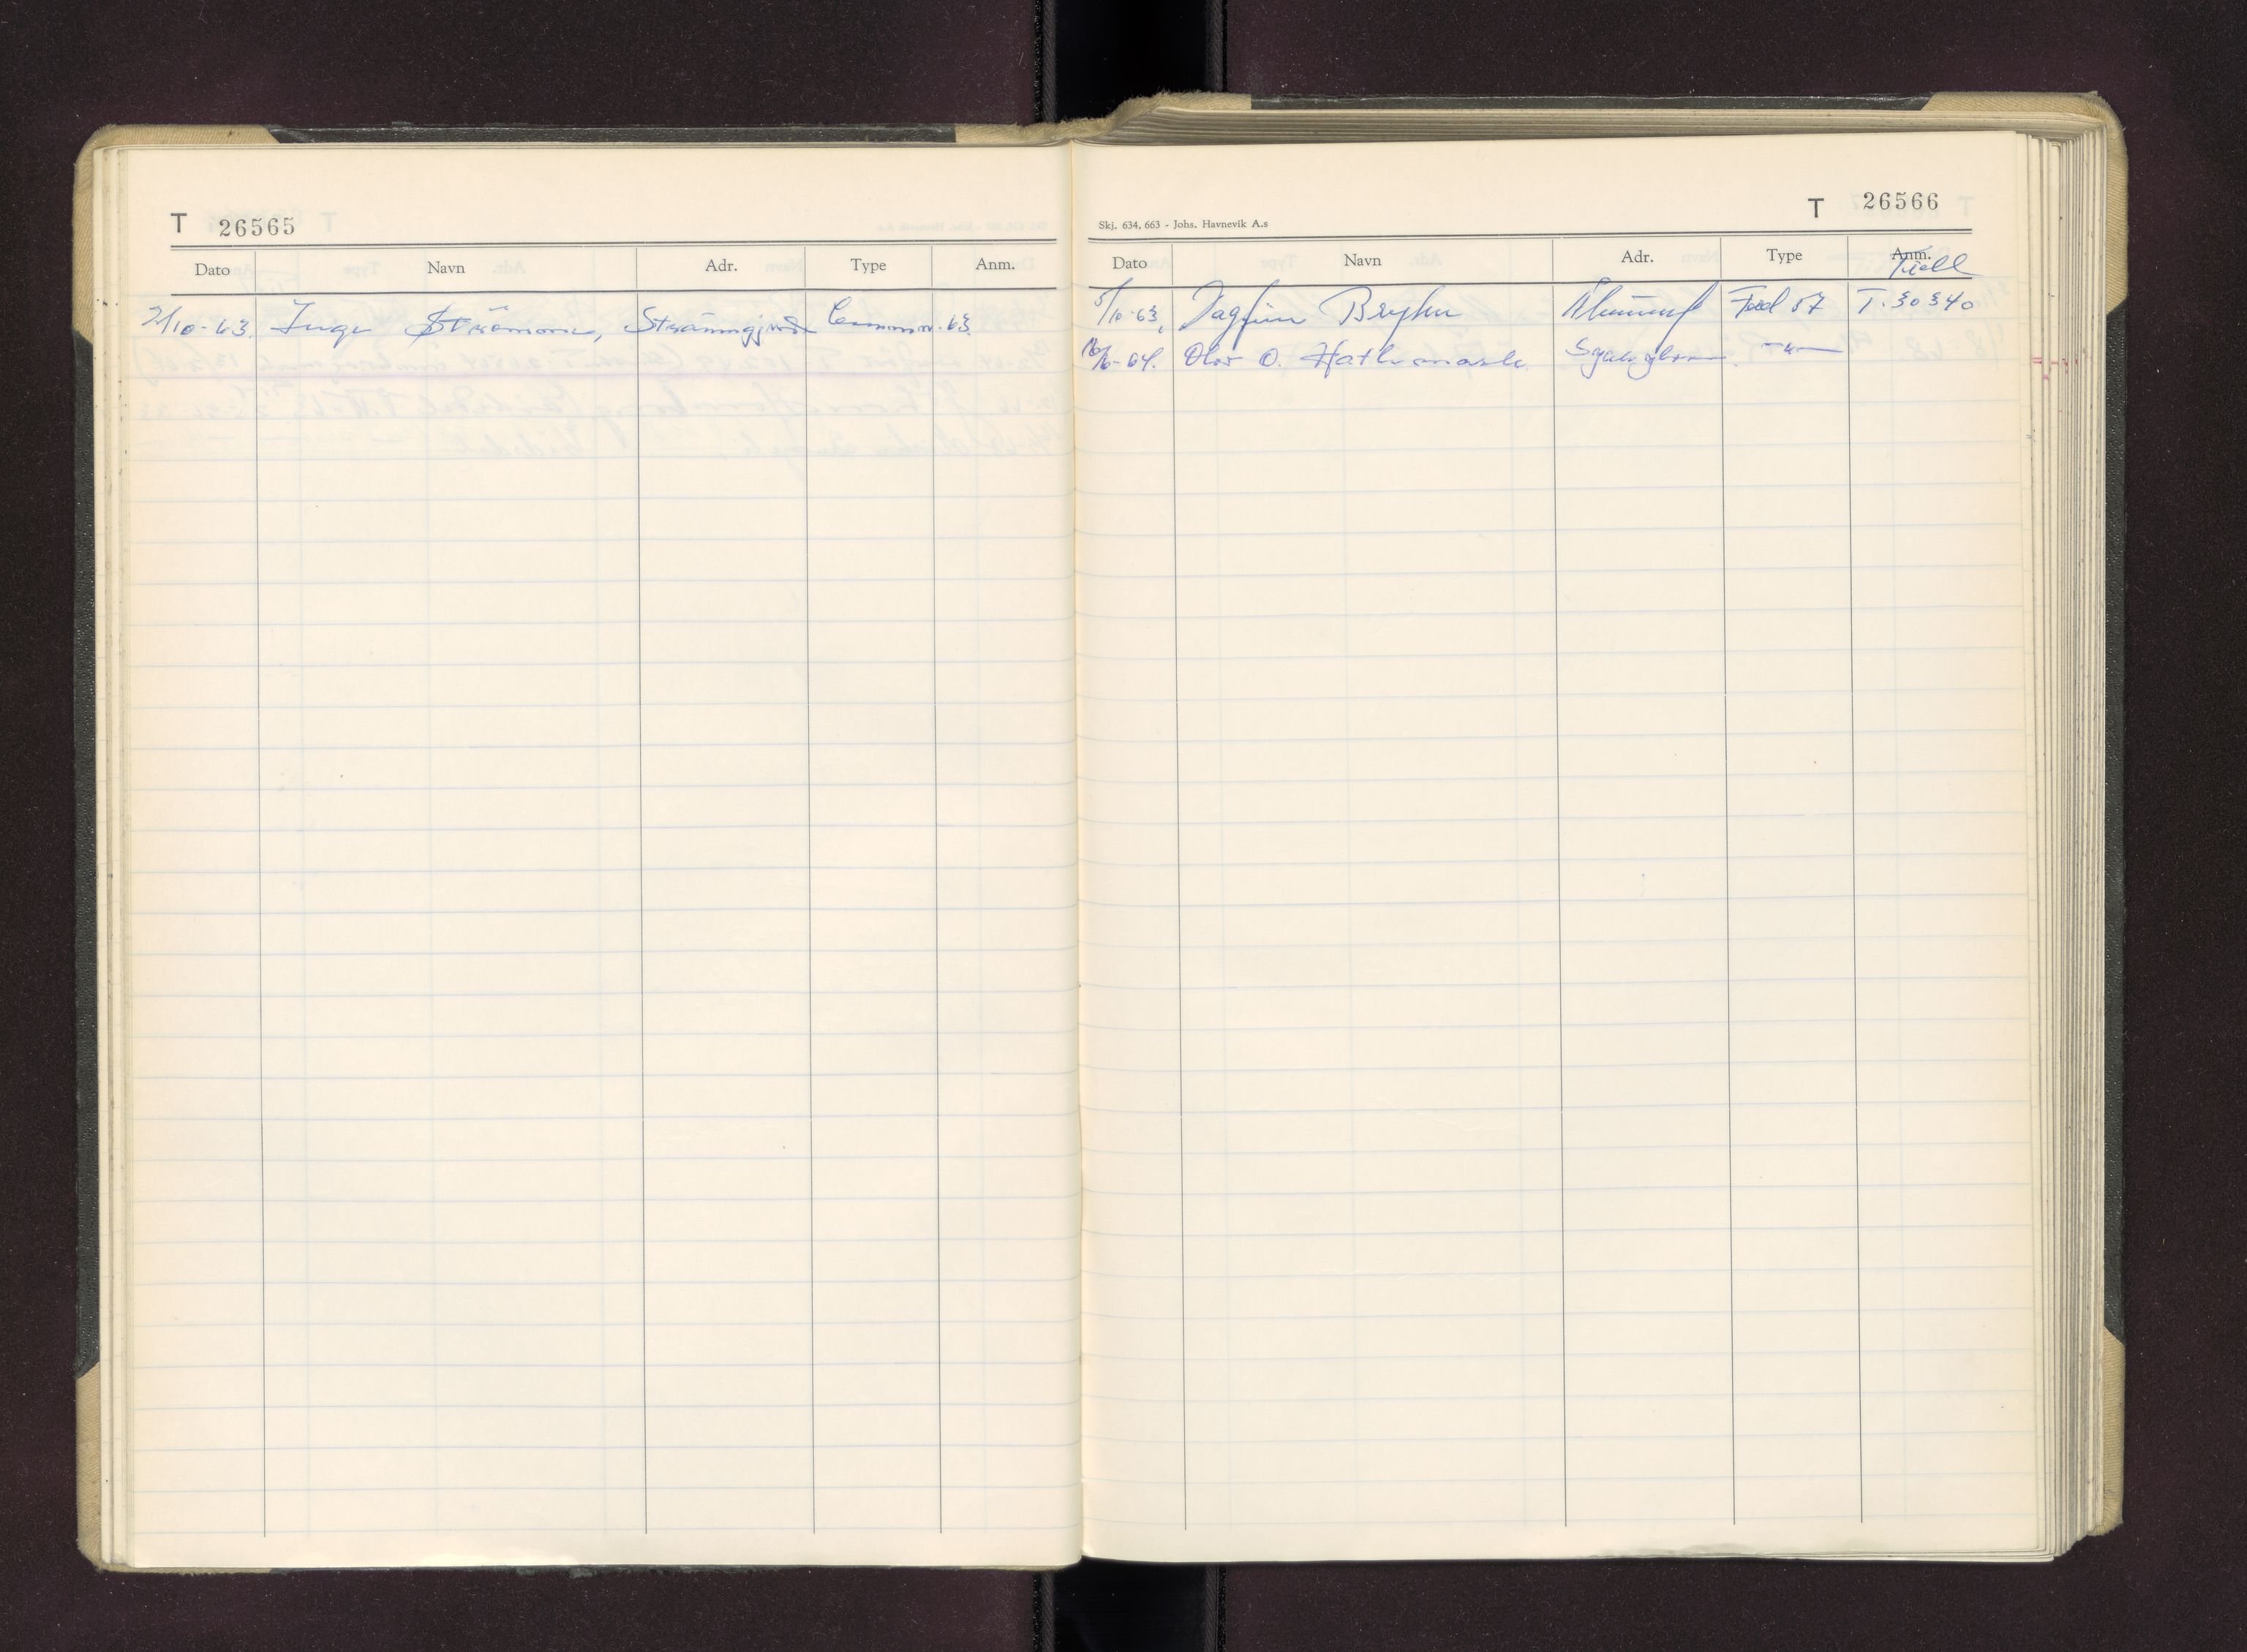 T 26565
Dato Navn Adr. Type Anm.
2/10-63. Inge Strømme, Strømmgjerde Commer. 63
T 26566
Skj. 634, 663 - Johs. Havnevik A.s
Dato Navn Adr. Type Anm.
5/10-63, Dagfinn Bryhn Ålesund Ford 57 T. 30340
16/6-64. Olav O. Hathmark — " —